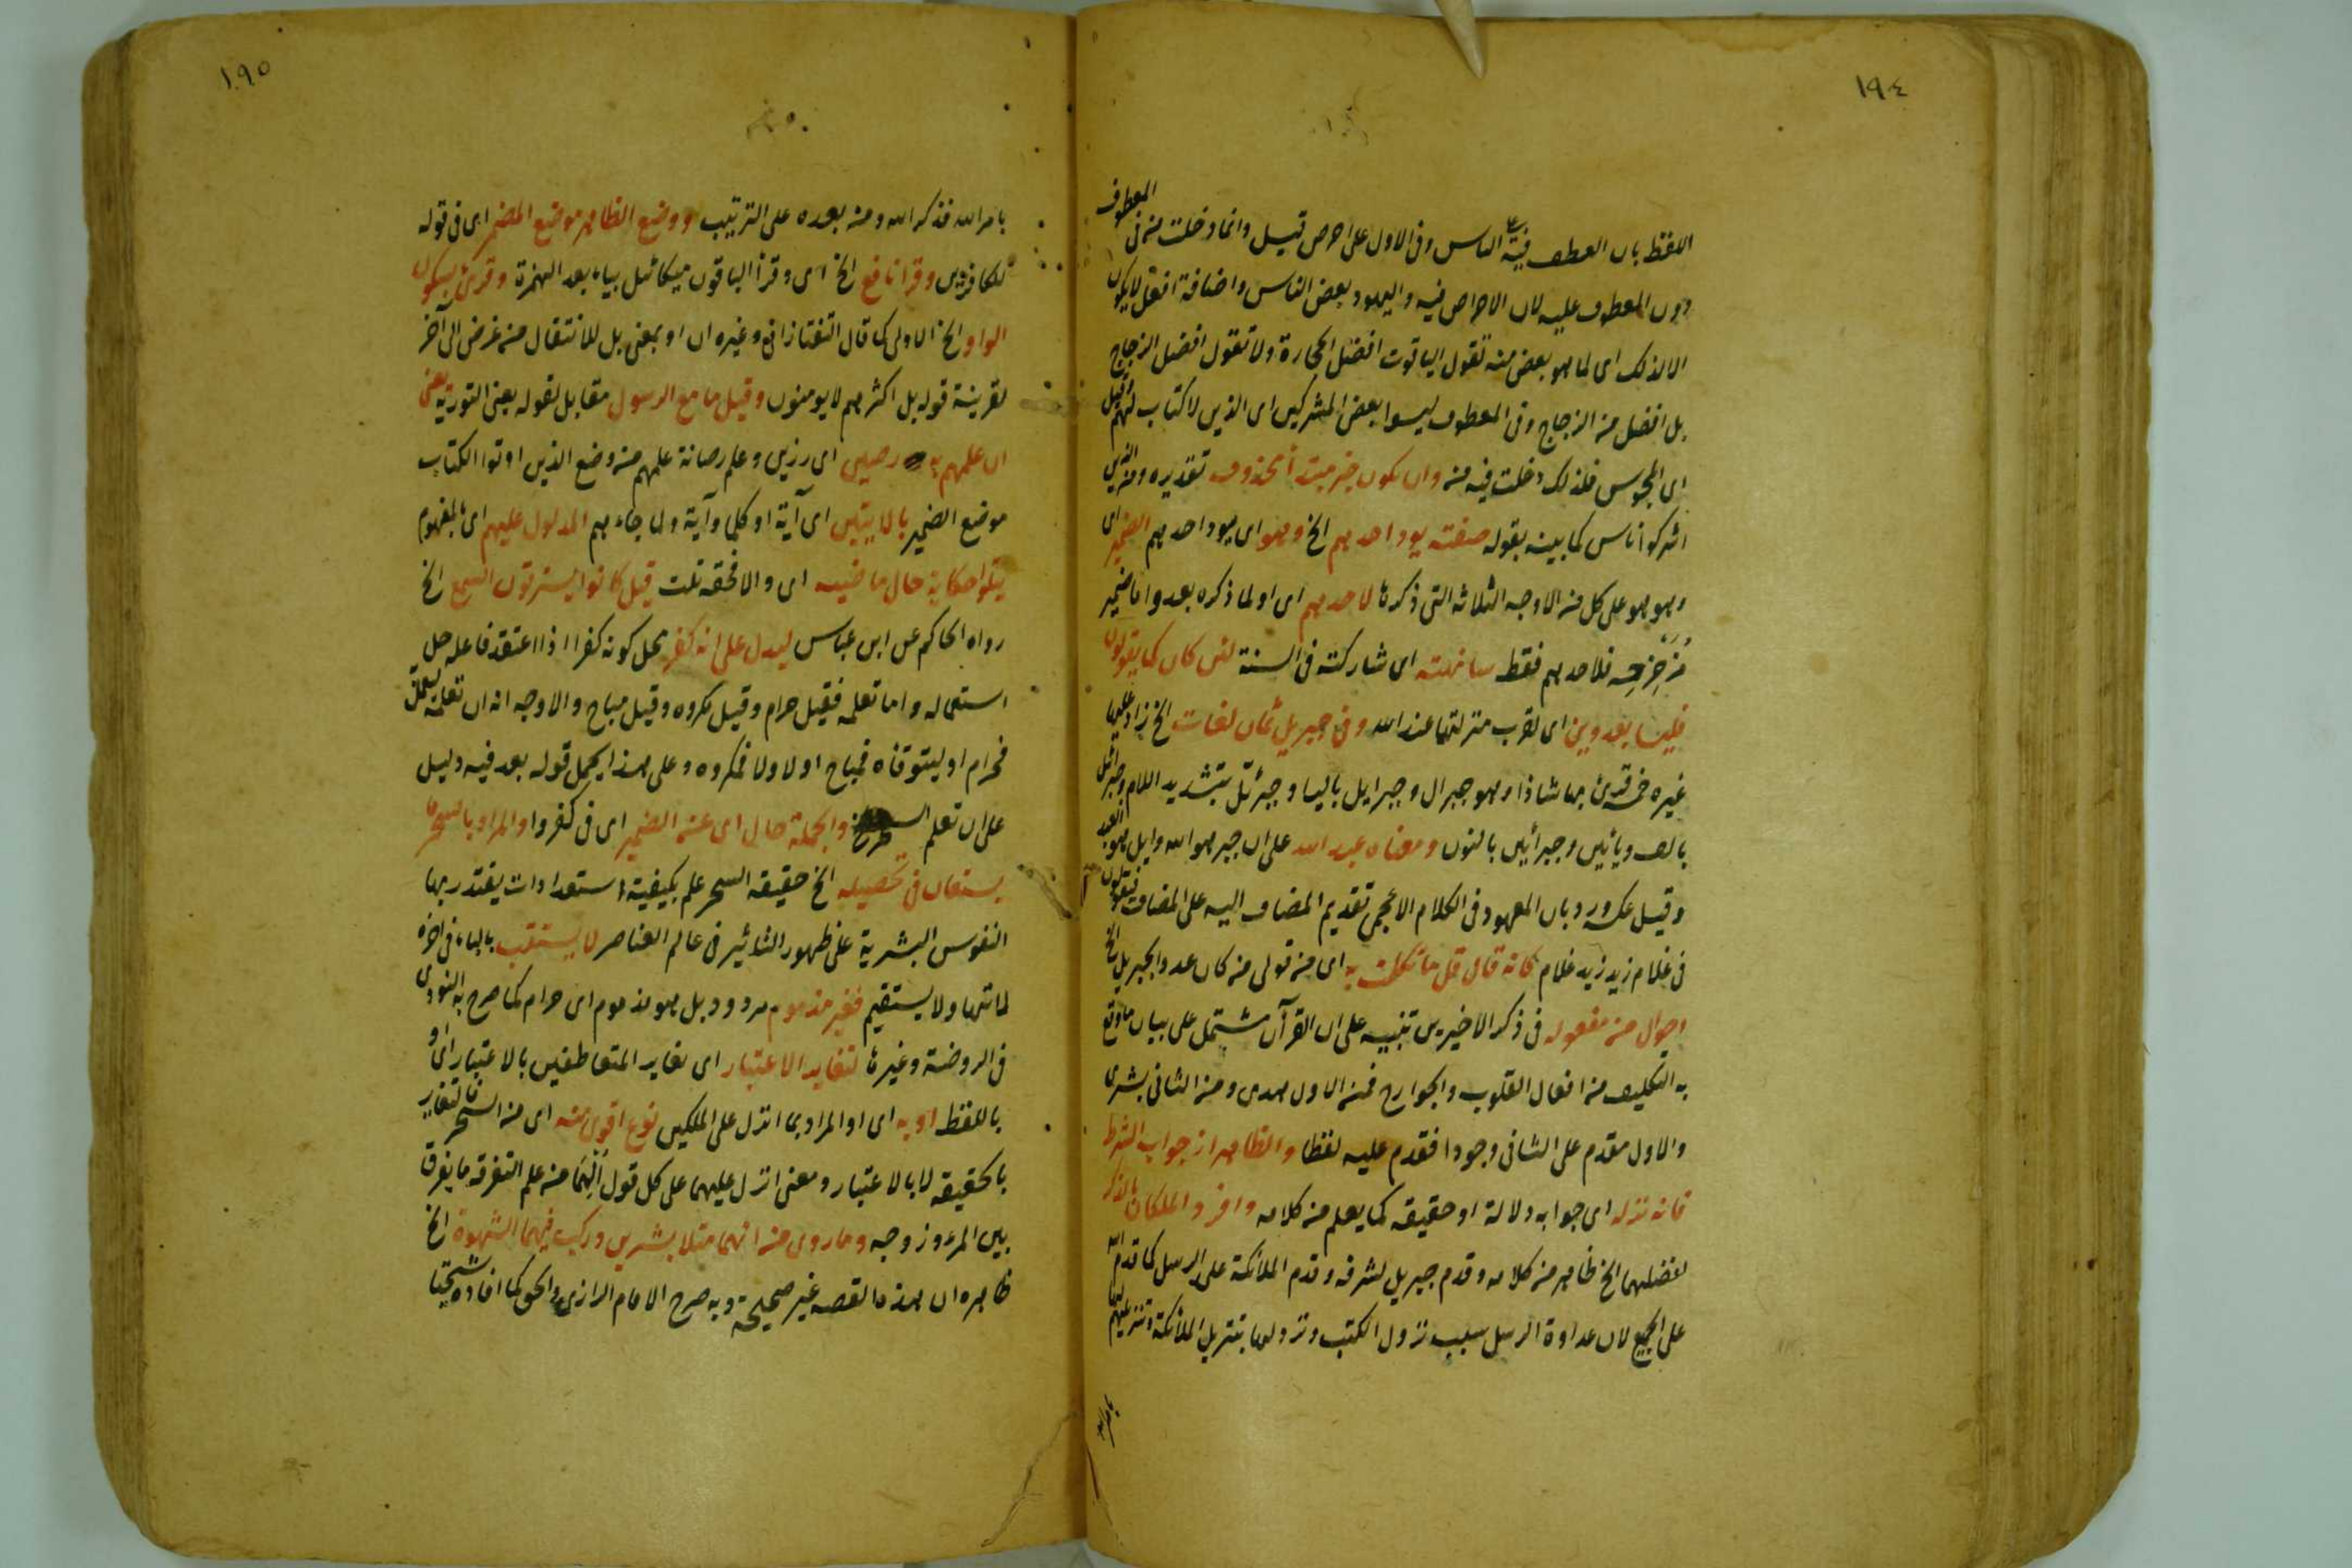 ١٩٤
اللفظ بان العطف فيه على الناس وفى الاول على احرص قيل وانما دخلت من فى المعطوف
دون المعطوف عليه لان الاحراص فيه واليهود بعض الناس واضافة افعل لا يكون
الا لذلك اى لما هو بعض منه تقول الياقوت افضل الحجارة ولا تقول افضل الزجاج
بل افضل من الزجاج وفى المعطوف ليسوا بعض المشركين اى الذين لا كتاب لهم قيل
اى المجوس فلذلك دخلت فيه من وان يكون خبر مبتدأ محذوف تقديره ومن الذين
اشركوا ناس كما بينه بقوله صفته يود احدهم الخ وهو اى يود احدهم الضمير اى
وهو هو على كل من الاوجه الثلاثه التى ذكرها لاحدهم اى او لما ذكره بعد واما ضمير
مزحزحه فلاحدهم فقط سانهته اى شاركته فى السنة لئن كان كما يقولون
فليسا بعدوين اى لقرب منزلتهما عند الله وفى جبريل ثمان لغات الخ زاد عليها
غيره خمسة قرئ بها شاذا وهو جبرال وجبرايل بالياء وجبرئل بتشديد اللام وجبرائيل
بالف ويائين وجبرائين بالنون ومعناه عبد الله على ان جبر هو الله وايل هو العبد
وقيل عكسه ورد بان المعهود فى الكلام الاعجمى تقديم المضاف اليه على المضاف فيقولون
فى غلام زيد زيد غلام كانه قال قل ما تكلمت به اى من قولى من كان عدوا لجبريل الخ
احوال من مفعوله فى ذكر الاخيرين تنبيه على ان القرآن مشتمل على بيان ما وقع
به التكليف من افعال القلوب والجوارح فمن الاول هدى ومن الثانى بشرى
والاول مقدم على الثانى وجودا فقدم عليه لفظا والظاهر ان جواب الشرط
فانه نزله اى جوابه دلالة او حقيقه كما يعلم من كلامه وافرد الملكان بالذكر
لفضلهما الخ ظاهر من كلامه وقدم جبريل لشرفه وقدم الملائكة على الرسل كما قدم الله
على الجميع لان عداوة الرسل بسبب نزول الكتب ونزولها بتنزيل الملائكة وتنزيلهم لها
بامر الله
١٩٥
بامر الله فذكر الله ومن بعده على الترتيب ووضع الظاهر موضع المضمر اى فى قوله
للكافرين وقرا نافع الخ اى وقرأ الباقون ميكائيل بياء بعد الهمزة وقرئ بسكون
الواو الخ الاولى كما قال التفتازانى وغيره ان او بمعنى بل للانتقال من غرض الى آخر
بقرينة قوله بل اكثرهم لا يومنون وقيل ما مع الرسول مقابل لقوله يعنى التورية يعنى
ان علمهم به رصين اى رزين وعلم رصانة علمهم من وضع الذين اوتوا الكتاب
موضع الضمير بالايتين اى آية او كلما وآية ولما جاءهم المدلول عليهم اى بالمفهوم
يتلوا حكاية حال ماضيه اى والا فحقه تلت قيل كانوا يسترقون السمع الخ
رواه الحاكم عن ابن عباس ليدل على انه كفر محل كونه كفرا اذا اعتقد فاعله حل
استعماله واما تعلمه فقيل حرام وقيل مكروه وقيل مباح والاوجه انه ان تعلمه ليعمل به
فحرام او ليتوقاه فمباح او لا ولا فمكروه وعلى هذا يحمل قوله بعد فيه دليل
على ان تعلم السحر الخ والجملة حال اى عن الضمير اى فى كفروا والمراد بالسحر ما
يستعان فى تحصيله الخ حقيقه السحر علم بكيفية استعدادات يقتدر بها
النفوس البشرية على ظهور التاثير فى عالم العناصر لا يستتب بالباء فى اخره
لما تهيا ولا يستقيم فغير مذموم مردود بل هو مذموم اى حرام كما صرح به النووى
فى الروضة وغيرها لتغاير الاعتبار اى تغاير المتعاطفين بالاعتبار اى
باللفظ او به اى او المراد بما انزل على الملكين نوع اقوى منه اى من السحر فالتغاير
بالحقيقه لا بالاعتبار ومعنى انزل عليهما على كل قول الهما من علم التفرقه ما يفرق
بين المرء وزوجه وما روى من انهما مثلا بشرين وركب فيهما الشهوة الخ
ظاهره ان هذه القصه غير صحيحة وبه صرح الامام الرازى والحق كما افاده شيخنا